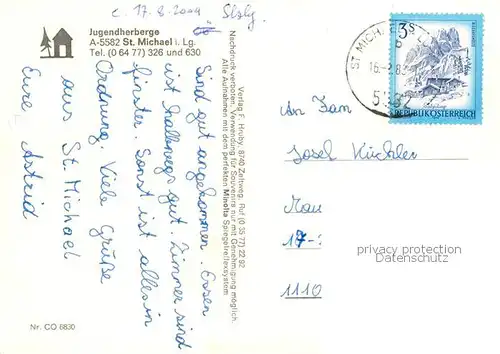 c. 17.8.2009
Jugendherberge
A-5582 St. Michael i. Lg.
Tel. (0 64 77) 326 und 630
Sind gut angekommen. Essen
ist halbwegs gut. Zimmer sind
finster. Sonst ist alles in
Ordnung. Viele Grüße
aus St. Michael
Eure Astrid
Verlag F. Hruby, 8740 Zeltweg, Ruf (0 35 77) 22 92
Nachdruck verboten, Verwendung für Souvenirs nur mit Genehmigung möglich.
Alle Aufnahmen mit dem perfekten Minolta Spiegelreflexsystem
Nr. CO 6830
ST. MICH
3S
5582
REPUBLIK ÖSTERREICH
An Fam
Josef Küchler
1110
privacy protection
AKPOOL.DE